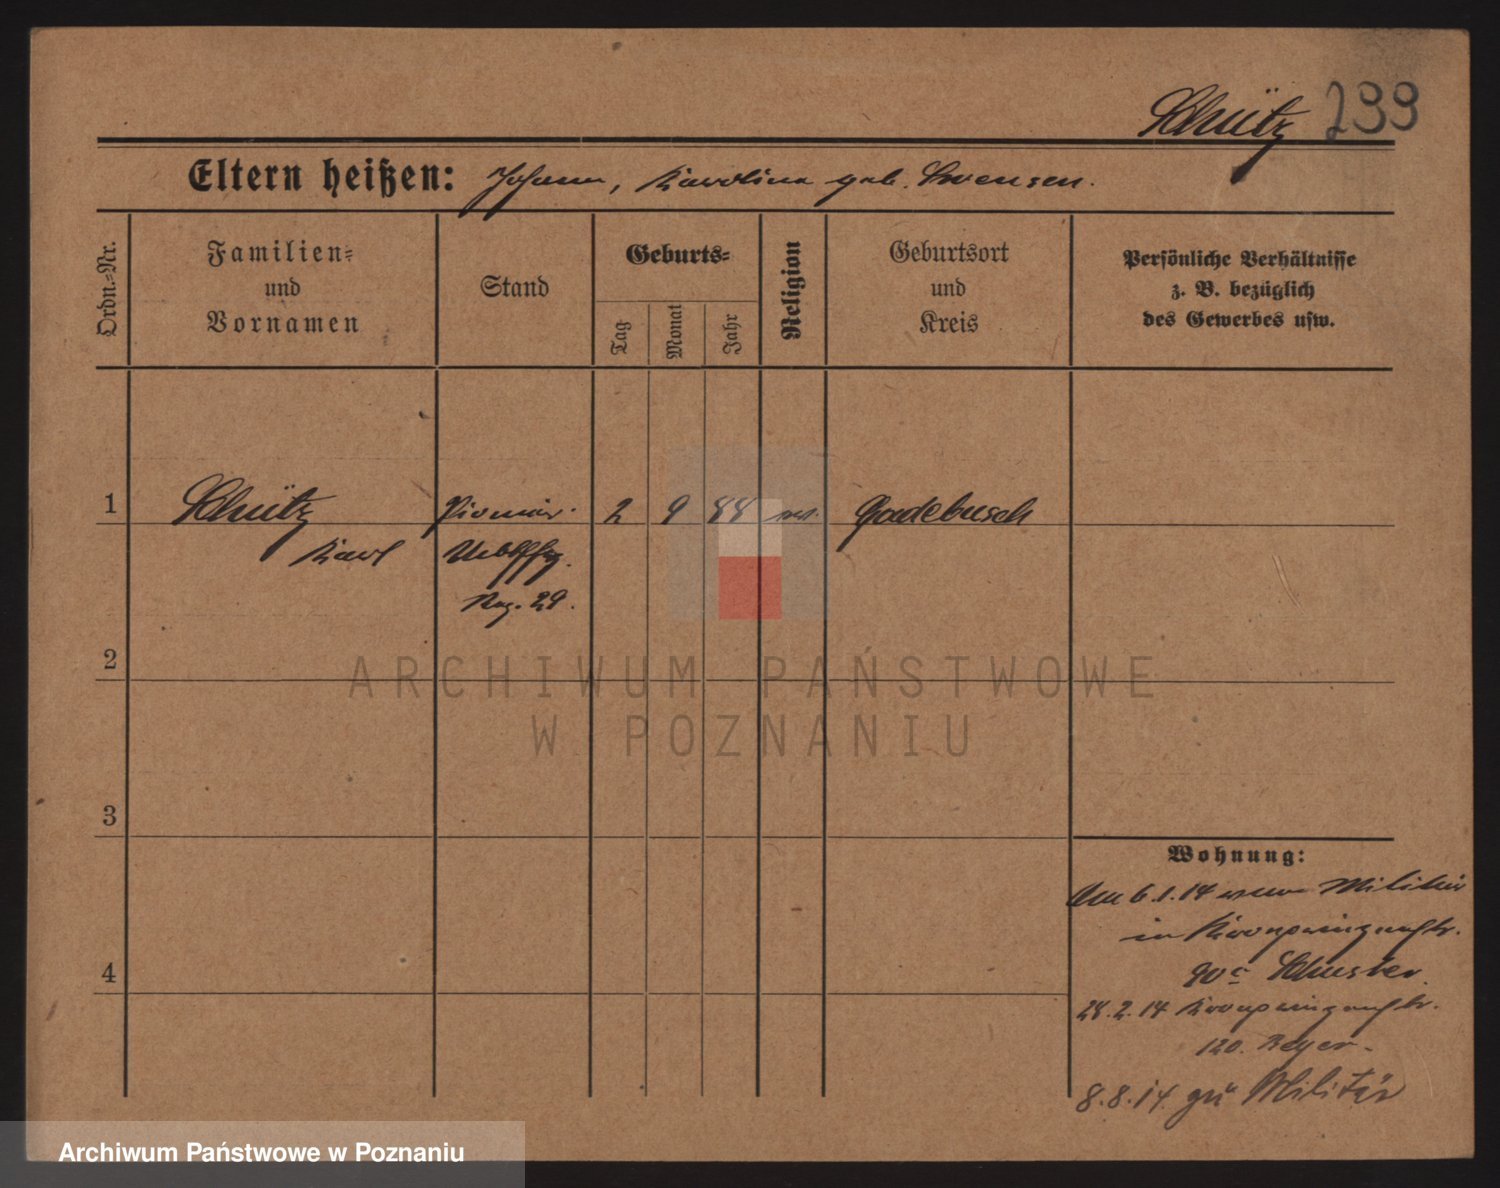 Schütz 299
Eltern heißen: Johann, Karolina geb. Swensen.
Ordn.-Nr.
Familien-
und
Vornamen
Stand
Geburts-
Tag
Monat
Jahr
Religion
Geburtsort
und
Kreis
Persönliche Verhältnisse
z. B. bezüglich
des Gewerbes usw.
1 Schütz Pionier 2 9 88 Gadebusch
Karl
Reg. 29.
2
3
4
Wohnung:
Am 6.1.14 vom Militär
in Kronprinzenstr.
90c Schuster
28.2.14 Kronprinzenstr.
120. Beyer.
8.8.14. zu Militär
ARCHIWUM PAŃSTWOWE
W POZNANIU
Archiwum Państwowe w Poznaniu